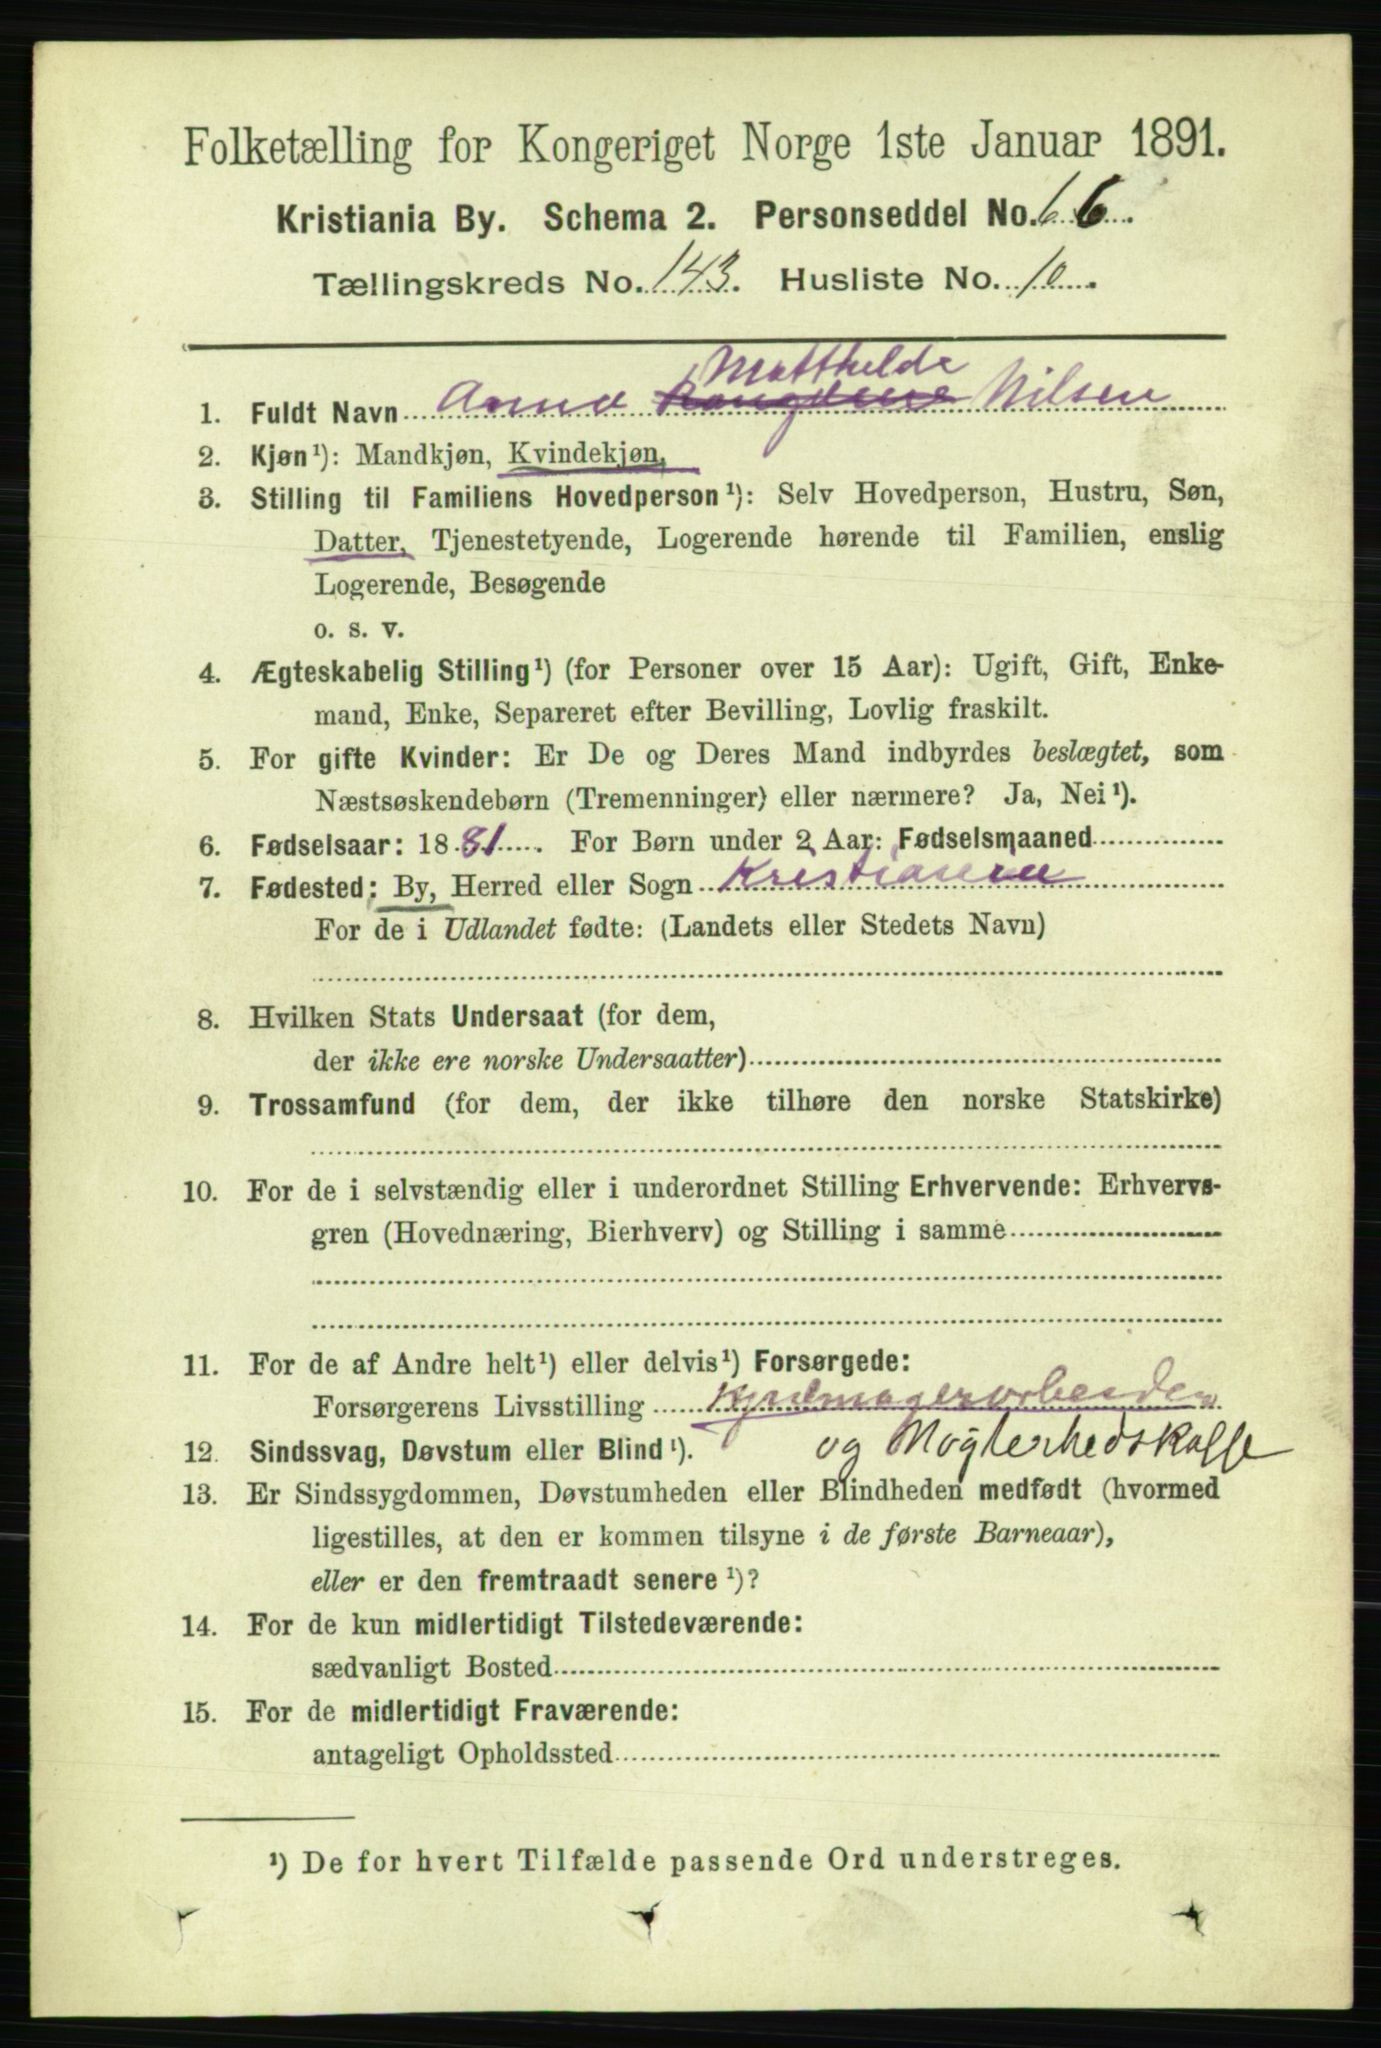 Folketælling for Kongeriget Norge 1ste Januar 1891.
Kristiania By. Schema 2. Personseddel No. 66.
Tællingskreds No. 143. Husliste No. 10.
Matthilde
1. Fuldt Navn Anna Nilsen
2. Kjøn¹): Mandkjøn, Kvindekjøn,
3. Stilling til Familiens Hovedperson¹): Selv Hovedperson, Hustru, Søn,
Datter, Tjenestetyende, Logerende hørende til Familien, enslig
Logerende, Besøgende
o. s. v.
4. Ægteskabelig Stilling¹) (for Personer over 15 Aar): Ugift, Gift, Enke-
mand, Enke, Separeret efter Bevilling, Lovlig fraskilt.
5. For gifte Kvinder: Er De og Deres Mand indbyrdes beslægtet, som
Næstsøskendebørn (Tremenninger) eller nærmere? Ja, Nei¹).
6. Fødselsaar: 1881. For Børn under 2 Aar: Fødselsmaaned
7. Fødested: By, Herred eller Sogn Kristiania
For de i Udlandet fødte: (Landets eller Stedets Navn)
8. Hvilken Stats Undersaat (for dem,
der ikke ere norske Undersaatter)
9. Trossamfund (for dem, der ikke tilhøre den norske Statskirke)
10. For de i selvstændig eller i underordnet Stilling Erhvervende: Erhvervs-
gren (Hovednæring, Bierhverv) og Stilling i samme
11. For de af Andre helt¹) eller delvis¹) Forsørgede:
Forsørgerens Livsstilling Hjulmagerarbeider
12. Sindssvag, Døvstum eller Blind¹). og
13. Er Sindssygdommen, Døvstumheden eller Blindheden medfødt (hvormed
ligestilles, at den er kommen tilsyne i de første Barneaar),
eller er den fremtraadt senere¹)?
14. For de kun midlertidigt Tilstedeværende:
sædvanligt Bosted
15. For de midlertidigt Fraværende:
antageligt Opholdssted
¹) De for hvert Tilfælde passende Ord understreges.